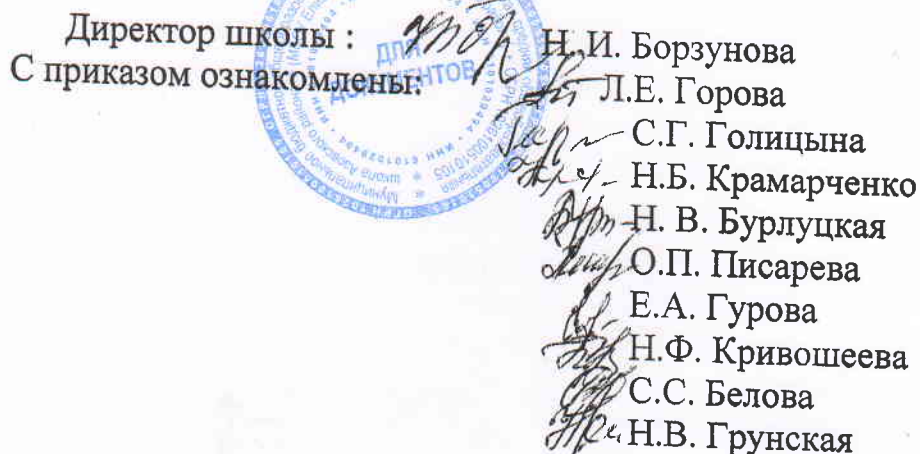 Директор школы : Н. И. Борзунова
С приказом ознакомлены: Л.Е. Горова
С.Г. Голицына
Н.Б. Крамарченко
Н. В. Бурлуцкая
О.П. Писарева
Е.А. Гурова
Н.Ф. Кривошеева
С.С. Белова
Н.В. Грунская
ДЛЯ
ДОКУМЕНТОВ